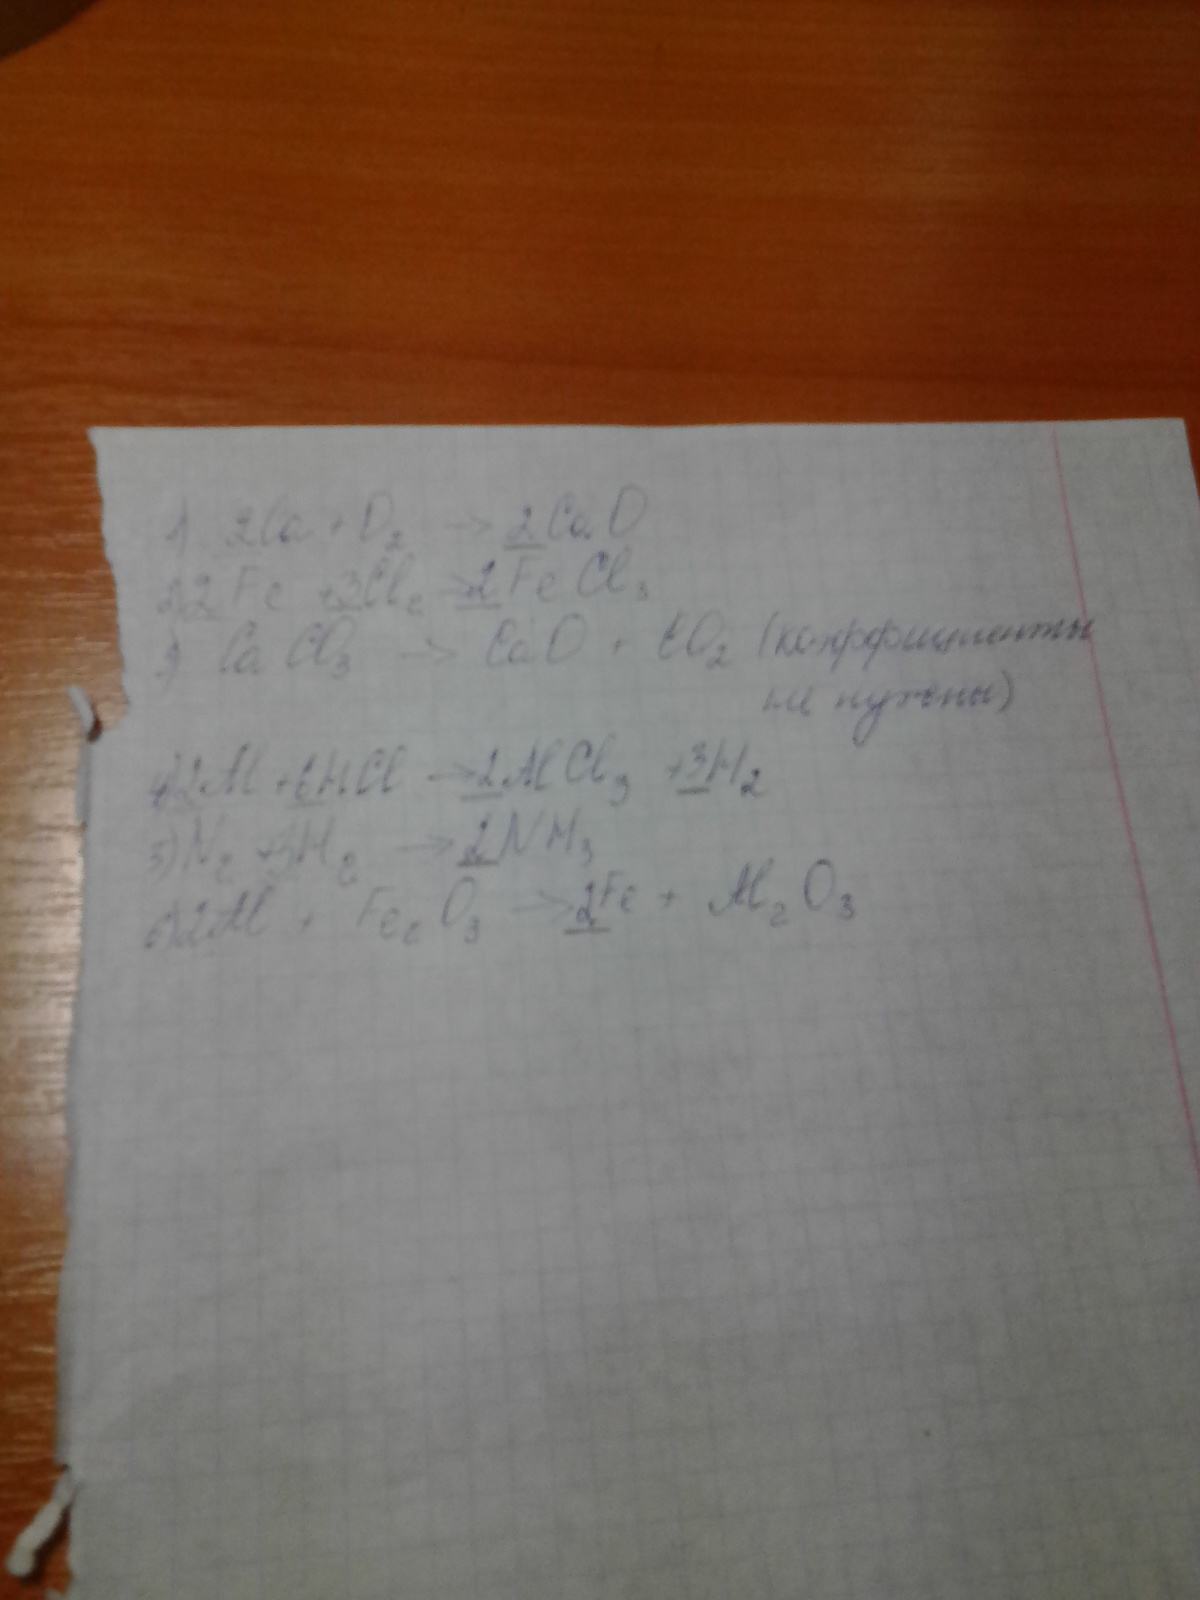 1) 2Ca + O₂ → 2CaO
2) 2Fe + 3Cl₂ → 2FeCl₃
3) CaCO₃ → CaO + CO₂ (коэффициенты
не нужны)
4) 2Al + 6HCl → 2AlCl₃ + 3H₂
5) N₂ + 3H₂ → 2NH₃
6) 2Al + Fe₂O₃ → 2Fe + Al₂O₃